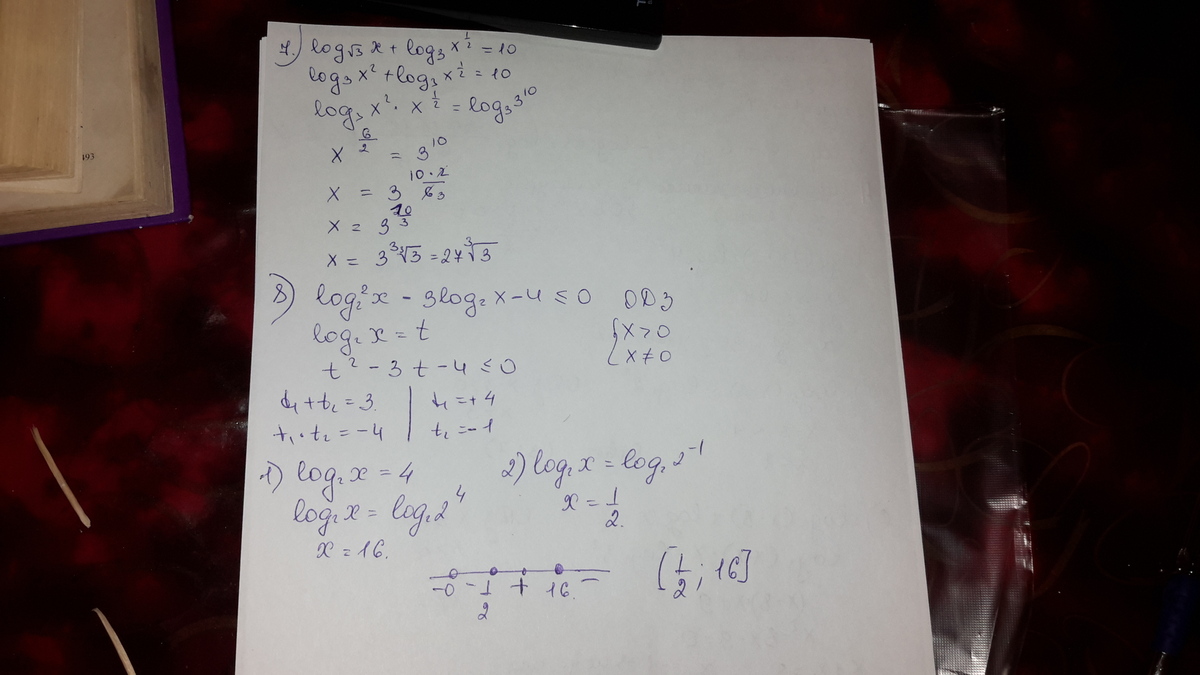 493
7.) log√3 x + log₃ x^(1/2) = 10
log₃ x² + log₃ x^(1/2) = 10
log₃ x² · x^(1/2) = log₃ 3^10
x^(6/2) = 3^10
x = 3^(10·2/6 3)
x = 3^(10/3)
x = 3³ ∛3 = 27 ∛3
8) log₂² x - 3log₂ x - 4 ≤ 0 ОДЗ
log₂ x = t { x > 0
x ≠ 0
t² - 3t - 4 ≤ 0
t₁ + t₂ = 3. | t₁ = + 4
t₁ · t₂ = -4 | t₂ = -1
1) log₂ x = 4 2) log₂ x = log₂ 2^-1
log₂ x = log₂ 2^4 x = 1/2.
x = 16.
-0 - 1/2 + 16. - [1/2; 16]